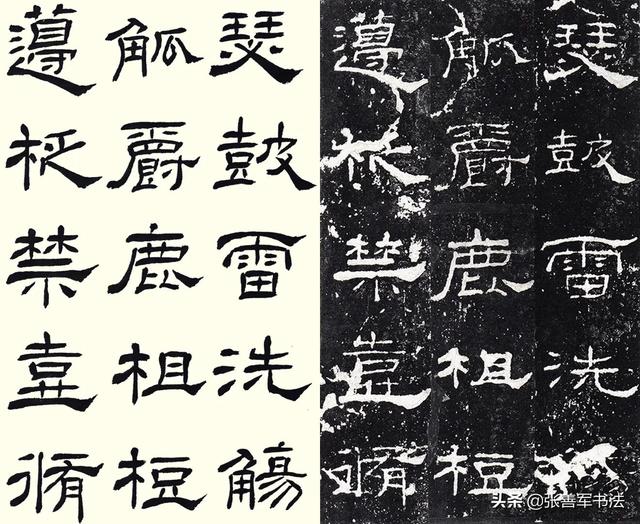 瑟鼓雷洗觴
觚爵鹿柤梪
籩柉禁壺脩
瑟鼓雷洗
觚爵鹿柤梪
籩柉禁壺脩
头条 @张善军书法